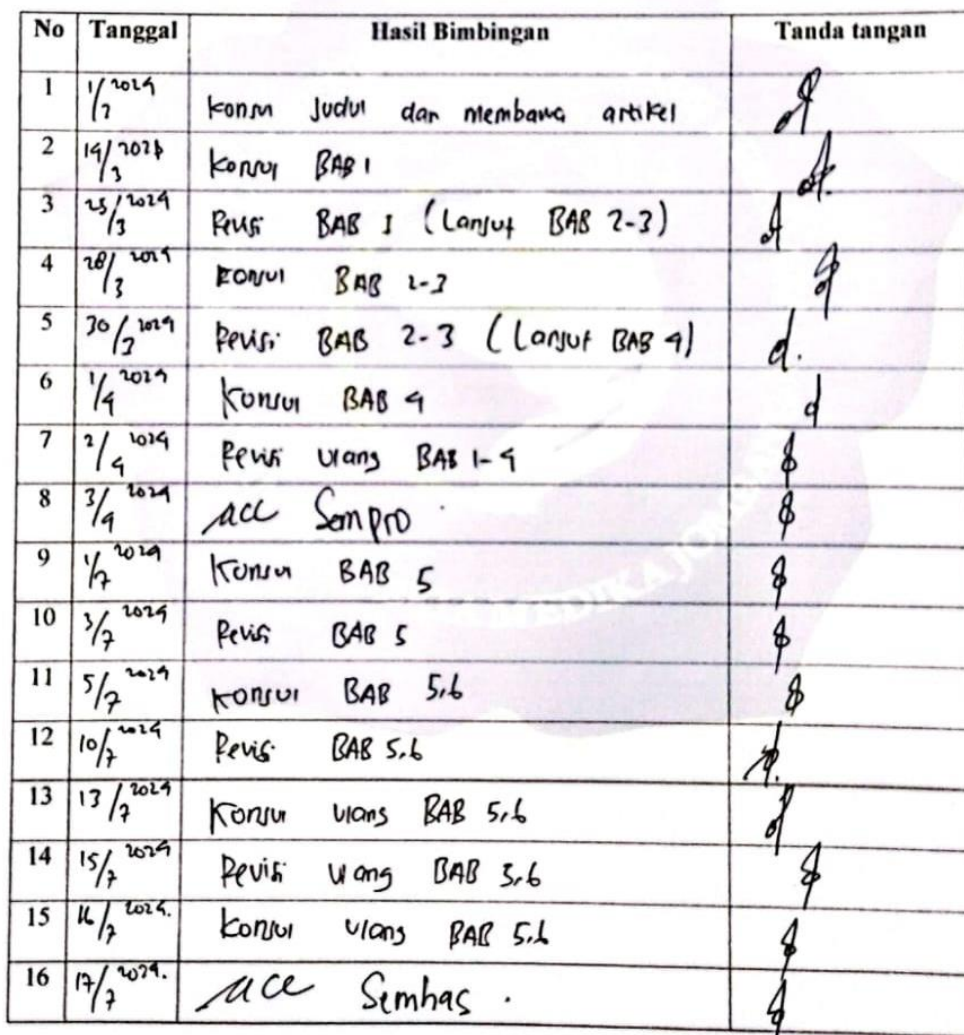 No Tanggal Hasil Bimbingan Tanda tangan
1 1/2 2024 Konsul Judul dan membawa artikel
2 19/3 2024 Konsul BAB 1
3 25/3 2024 Revisi BAB 1 (Lanjut BAB 2-3)
4 28/3 2024 Konsul BAB 2-3
5 30/3 2024 Revisi BAB 2-3 (Lanjut BAB 4)
6 1/4 2024 Konsul BAB 4
7 2/4 2024 Revisi ulang BAB 1-4
8 3/4 2024 acc Sempro
9 1/7 2024 Konsul BAB 5
10 3/7 2024 Revisi BAB 5
11 5/7 2024 Konsul BAB 5,6
12 10/7 2024 Revisi BAB 5,6
13 13/7 2024 Konsul ulang BAB 5,6
14 15/7 2024 Revisi ulang BAB 5,6
15 16/7 2024. Konsul ulang BAB 5,6
16 17/7 2024. acc Semhas.